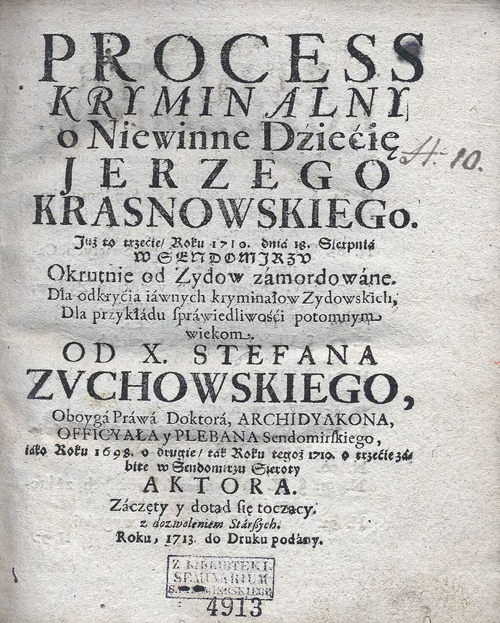 PROCESS
KRYMINALNY
o Niewinne Dźiećię
JERZEGO
KRASNOWSKIEGo.
Już to trzećie/ Roku 1710. dniá 18. Sierpniá
W SENDOMIRZV
Okrutnie od Zydow zámordowáne.
Dla odkryćia iáwnych kryminałow Zydowskich,
Dla przykłádu spráwiedliwośći potomnym
wiekom.
OD X. STEFANA
ZVCHOWSKIEGO,
Oboygá Práwá Doktorá, ARCHIDYAKONA,
OFFICYAŁA y PLEBANA Sendomirſkiego,
iáko Roku 1698. o drugie/ ták Roku tegoż 1710. o trzećie zá-
bite w Sendomirzu Sieroty
AKTORA.
Záczęty y dotąd się toczący.
z dozwoleniem Stárſzych.
Roku, 1713. do Druku podány.
H. 10.
Z BIBLIOTEKI
SEMINARIUM
4913